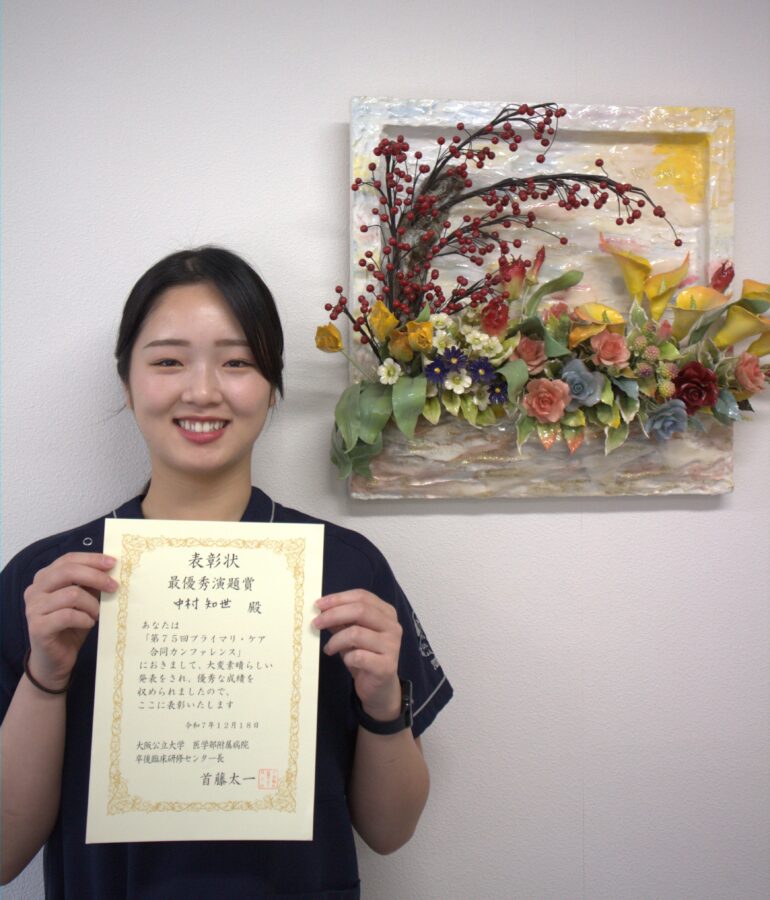 表彰状
最優秀演題賞
中村 知世 殿
あなたは
「第75回プライマリ・ケア
合同カンファレンス」
におきまして、大変素晴らしい
発表をされ、優秀な成績を
収められましたので、
ここに表彰いたします
令和7年12月18日
大阪公立大学 医学部附属病院
卒後臨床研修センター長
首藤太一